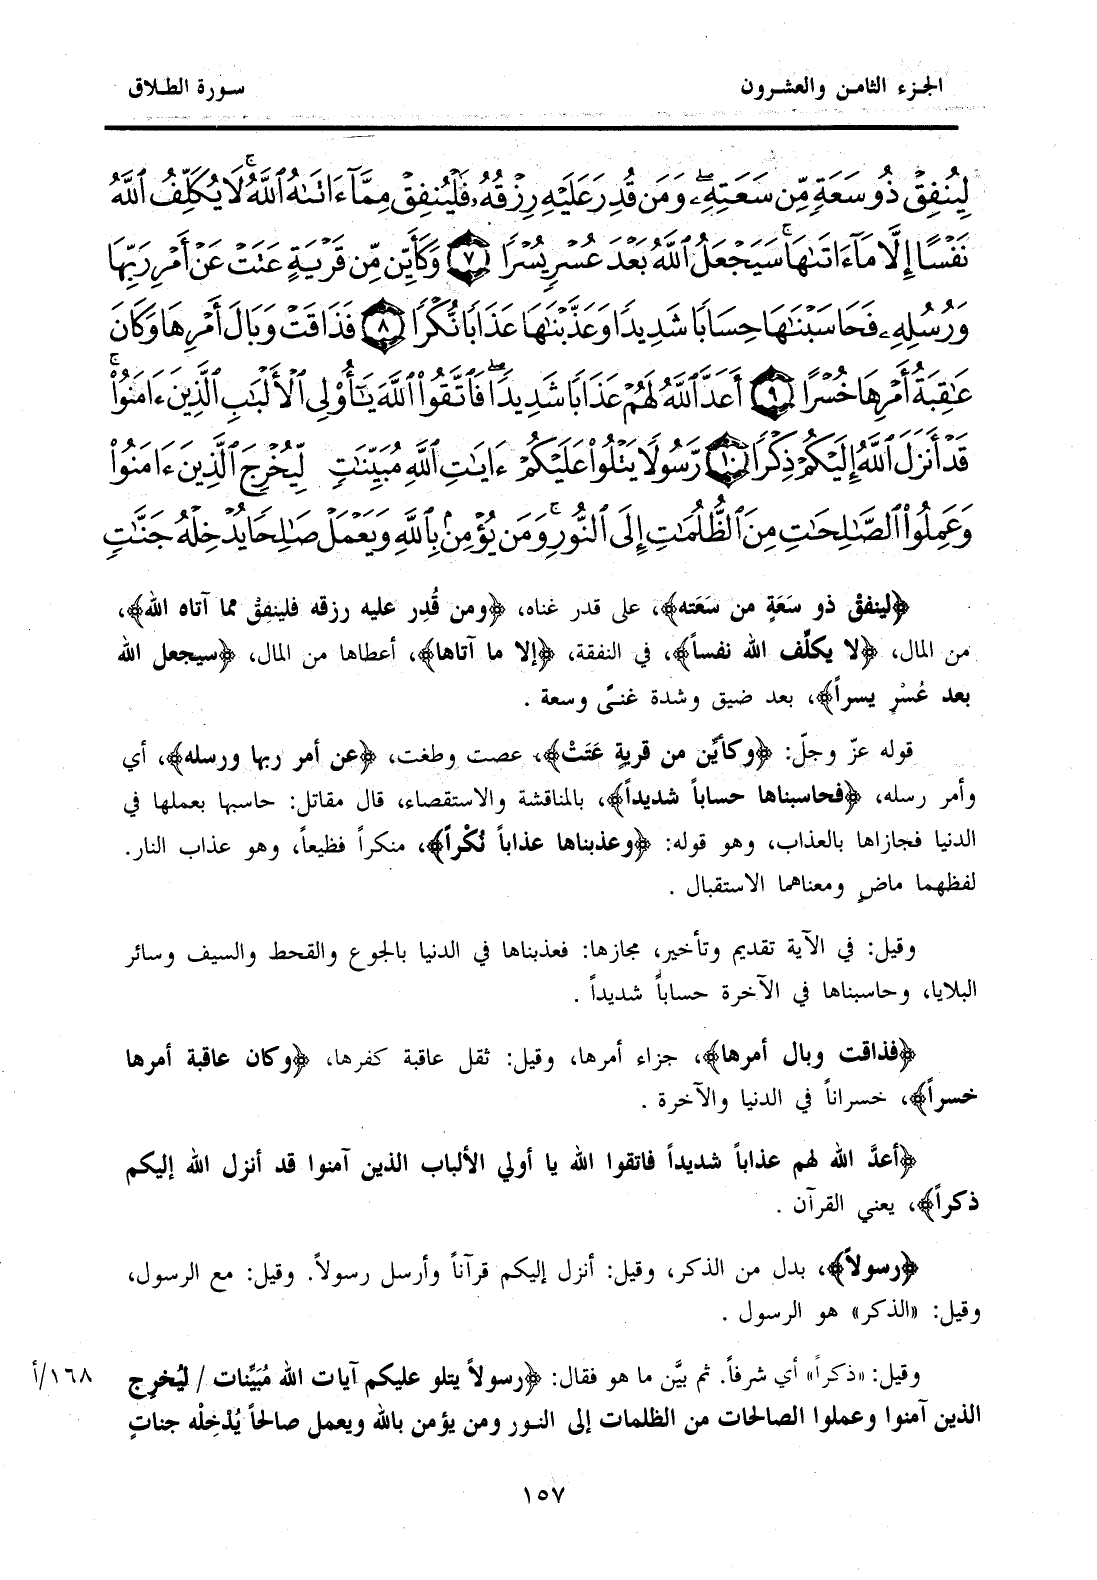 الجزء الثامن والعشرون
سورة الطلاق
لِيُنفِقْ ذُو سَعَةٍ مِّن سَعَتِهِۦ ۖ وَمَن قُدِرَ عَلَيْهِ رِزْقُهُۥ فَلْيُنفِقْ مِمَّآ ءَاتَىٰهُ ٱللَّهُ ۚ لَا يُكَلِّفُ ٱللَّهُ
نَفْسًا إِلَّا مَآ ءَاتَىٰهَا ۚ سَيَجْعَلُ ٱللَّهُ بَعْدَ عُسْرٍ يُسْرًا ٧ وَكَأَيِّن مِّن قَرْيَةٍ عَتَتْ عَنْ أَمْرِ رَبِّهَا
وَرُسُلِهِۦ فَحَاسَبْنَٰهَا حِسَابًا شَدِيدًا وَعَذَّبْنَٰهَا عَذَابًا نُّكْرًا ٨ فَذَاقَتْ وَبَالَ أَمْرِهَا وَكَانَ
عَٰقِبَةُ أَمْرِهَا خُسْرًا ٩ أَعَدَّ ٱللَّهُ لَهُمْ عَذَابًا شَدِيدًا ۖ فَٱتَّقُوا۟ ٱللَّهَ يَٰٓأُو۟لِى ٱلْأَلْبَٰبِ ٱلَّذِينَ ءَامَنُوا۟ ۚ
قَدْ أَنزَلَ ٱللَّهُ إِلَيْكُمْ ذِكْرًا ١٠ رَّسُولًا يَتْلُوا۟ عَلَيْكُمْ ءَايَٰتِ ٱللَّهِ مُبَيِّنَٰتٍ لِّيُخْرِجَ ٱلَّذِينَ ءَامَنُوا۟
وَعَمِلُوا۟ ٱلصَّٰلِحَٰتِ مِنَ ٱلظُّلُمَٰتِ إِلَى ٱلنُّورِ ۚ وَمَن يُؤْمِنۢ بِٱللَّهِ وَيَعْمَلْ صَٰلِحًا يُدْخِلْهُ جَنَّٰتٍ
﴿لينفقْ ذو سَعَةٍ من سَعَته﴾، على قدر غناه، ﴿ومن قُدِر عليه رزقه فلينفِقْ مما آتاه الله﴾،
من المال، ﴿لا يكلِّف الله نفساً﴾، في النفقة، ﴿إلا ما آتاها﴾، أعطاها من المال، ﴿سيجعل الله
بعد عُسْرٍ يسراً﴾، بعد ضيق وشدة غنىً وسعة .
قوله عزّ وجلّ: ﴿وكأيِّن من قريةٍ عَتَتْ﴾، عصت وطغت، ﴿عن أمر ربها ورسله﴾، أي
وأمر رسله، ﴿فحاسبناها حساباً شديداً﴾، بالمناقشة والاستقصاء، قال مقاتل: حاسبها بعملها في
الدنيا فجازاها بالعذاب، وهو قوله: ﴿وعذبناها عذاباً نُكْراً﴾، منكراً فظيعاً، وهو عذاب النار.
لفظهما ماضٍ ومعناهما الاستقبال .
وقيل: في الآية تقديم وتأخير، مجازها: فعذبناها في الدنيا بالجوع والقحط والسيف وسائر
البلايا، وحاسبناها في الآخرة حساباً شديداً .
﴿فذاقت وبال أمرها﴾، جزاء أمرها، وقيل: ثقل عاقبة كفرها، ﴿وكان عاقبة أمرها
خسراً﴾، خسراناً في الدنيا والآخرة .
﴿أعدَّ الله لهم عذاباً شديداً فاتقوا الله يا أولي الألباب الذين آمنوا قد أنزل الله إليكم
ذكراً﴾، يعني القرآن .
﴿رسولاً﴾، بدل من الذكر، وقيل: أنزل إليكم قرآناً وأرسل رسولاً. وقيل: مع الرسول،
وقيل: «الذكر» هو الرسول .
وقيل: «ذكراً» أي شرفاً. ثم بيَّن ما هو فقال: ﴿رسولاً يتلو عليكم آيات الله مُبَيِّنات / ليُخرِج
١٦٨/أ
الذين آمنوا وعملوا الصالحات من الظلمات إلى النور ومن يؤمن بالله ويعمل صالحاً يُدْخِلْه جناتٍ
١٥٧